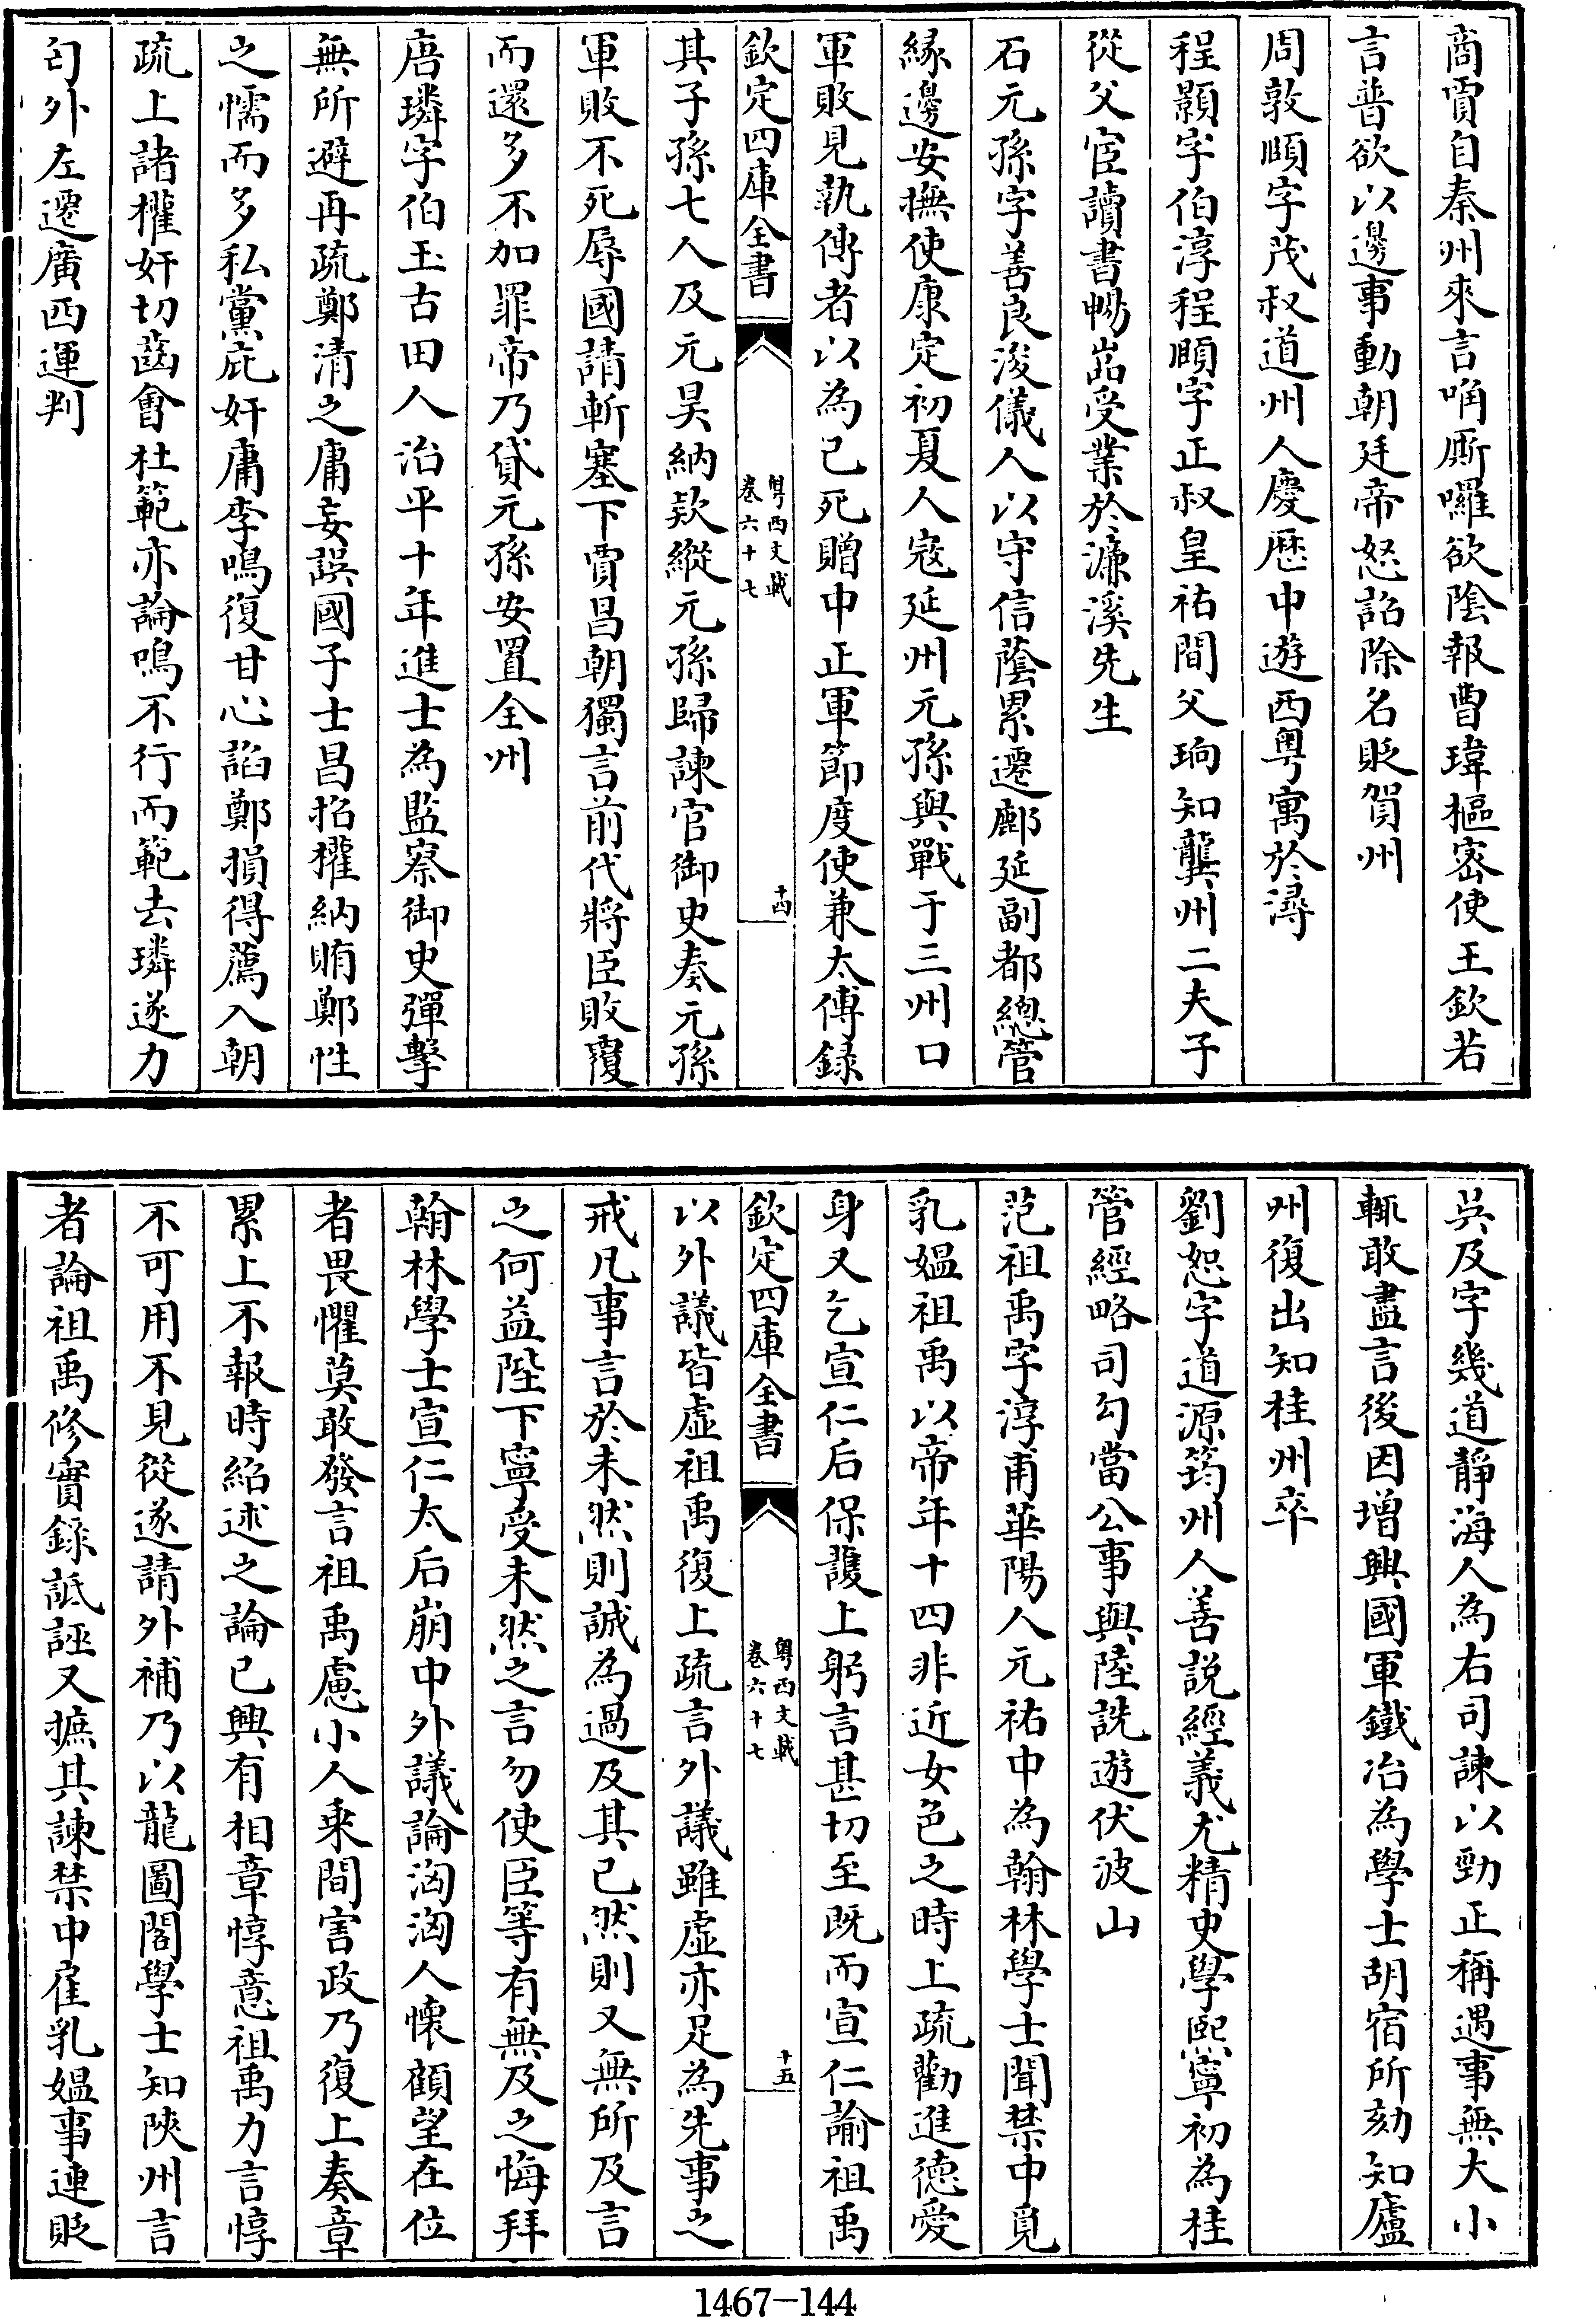 商賈自秦州來言唃厮囉欲陰報曹瑋樞密使王欽若
言普欲以邊事動朝廷帝怒詔除名貶賀州
周敦頤字茂叔道州人慶歴中遊西粤寓於潯
程顥字伯淳程頤字正叔皇祐間父珦知龔州二夫子
從父宦讀書暢巗受業於濂溪先生
石元孫字善良浚儀人以守信蔭累遷鄜延副都總管
緣邊安撫使康定初夏人寇延州元孫與戰于三州口
軍敗見執傳者以為已死贈中正軍節度使兼太傅録
欽定四庫全書
粤西文載
卷六十七
十四
其子孫七人及元昊納欵縱元孫歸諫官御史奏元孫
軍敗不死辱國請斬塞下賈昌朝獨言前代將臣敗覆
而還多不加罪帝乃貸元孫安置全州
唐璘字伯玉古田人治平十年進士為監察御史彈擊
無所避再疏鄭清之庸妄誤國子士昌招權納賄鄭性
之懦而多私黨庇奸庸李鳴復甘心諂鄭損得薦入朝
疏上諸權奸切齒會杜範亦論鳴不行而範去璘遂力
匄外左遷廣西運判
吳及字幾道靜海人為右司諫以勁正稱遇事無大小
輒敢盡言後因增興國軍鐵冶為學士胡宿所劾知廬
州復出知桂州卒
劉恕字道源筠州人善説經義尤精史學熙寧初為桂
管經略司勾當公事與陸詵遊伏波山
范祖禹字淳甫華陽人元祐中為翰林學士聞禁中覓
乳媼祖禹以帝年十四非近女色之時上疏勸進德愛
身又乞宣仁后保護上躬言甚切至既而宣仁諭祖禹
欽定四庫全書
粤西文載
卷六十七
十五
以外議皆虚祖禹復上疏言外議雖虚亦足為先事之
戒凡事言於未然則誠為過及其已然則又無所及言
之何益陛下寧受未然之言勿使臣等有無及之悔拜
翰林學士宣仁太后崩中外議論洶洶人懷顧望在位
者畏懼莫敢發言祖禹慮小人乘間害政乃復上奏章
累上不報時紹述之論已興有相章惇意祖禹力言惇
不可用不見從遂請外補乃以龍圖閣學士知陜州言
者論祖禹修實録詆誣又摭其諫禁中雇乳媼事連貶
1467-144